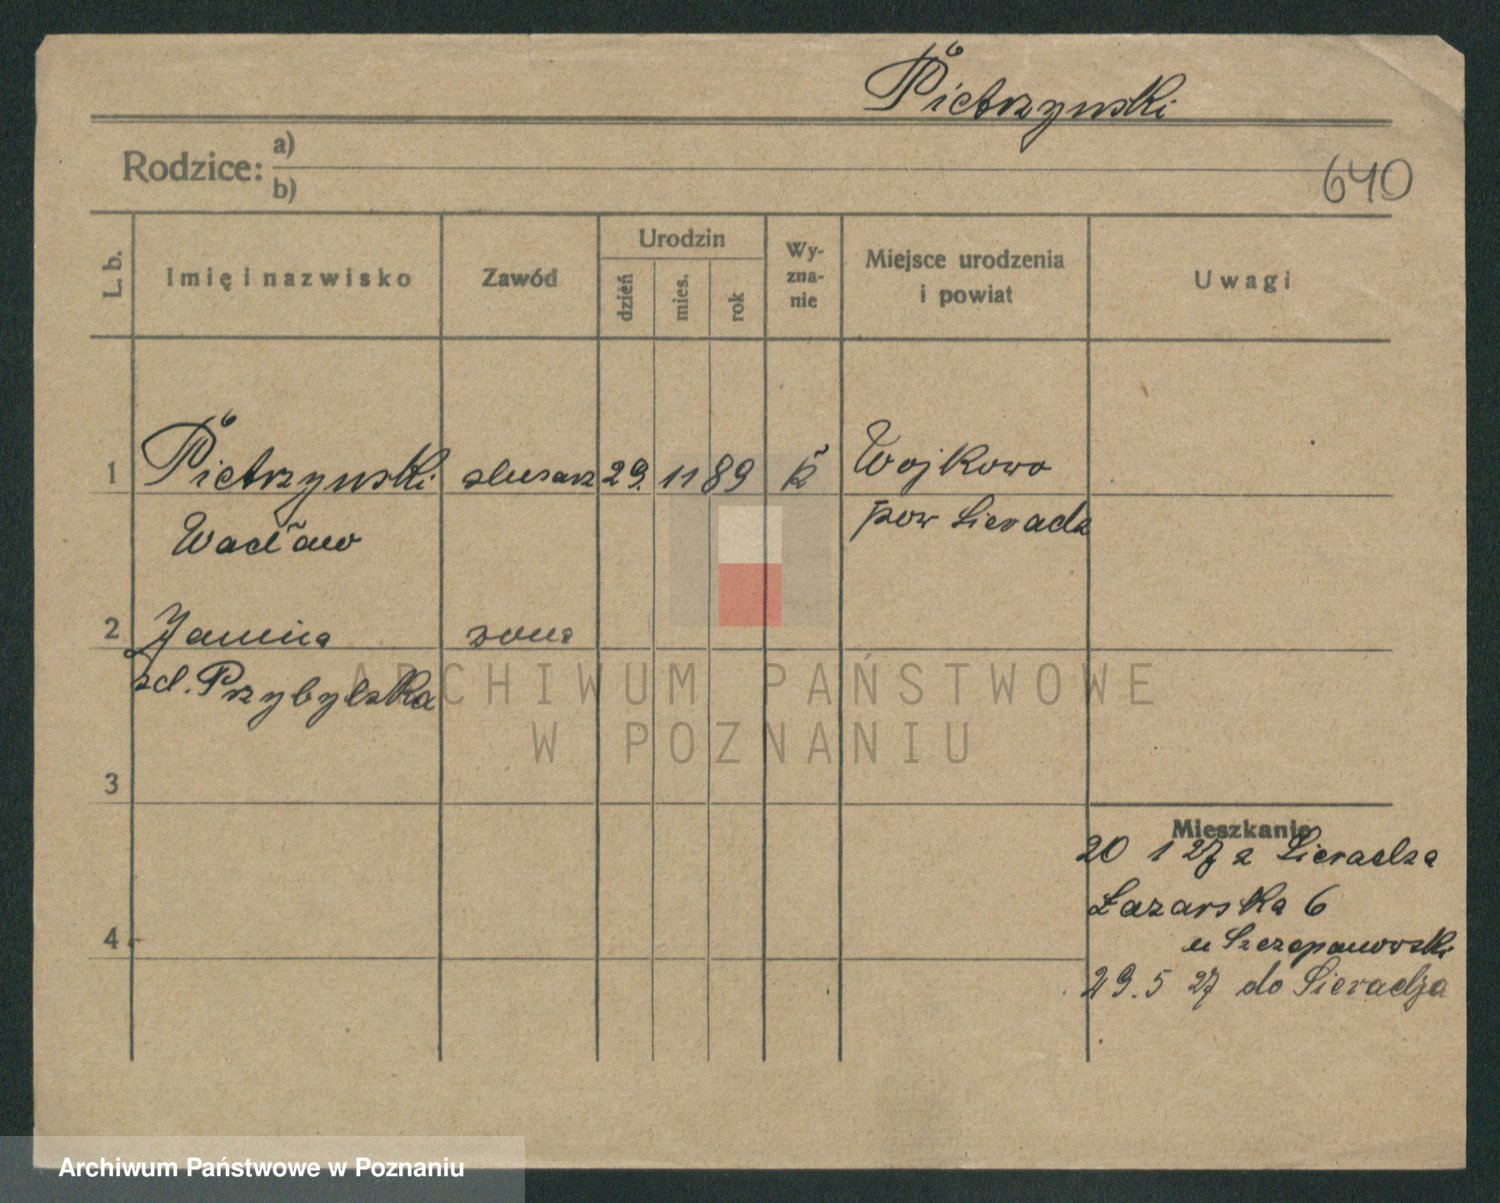 Pietrzyński
Rodzice: a)
b)
640
L. b.
Imię i nazwisko
Zawód
Urodzin
dzień
mies.
rok
Wy-
zna-
nie
Miejsce urodzenia
i powiat
Uwagi
1 Pietrzyński ślusarz 29. 11 89 k Wojkowo
Wacław pow Sieradz
2 Janina żona
zd. Przybylska
3
4
Mieszkanie
20 1 27 z Sieradza
Łazarska 6
u Szczepanowski
29. 5 27 do Sieradza
ARCHIWUM PAŃSTWOWE
W POZNANIU
Archiwum Państwowe w Poznaniu